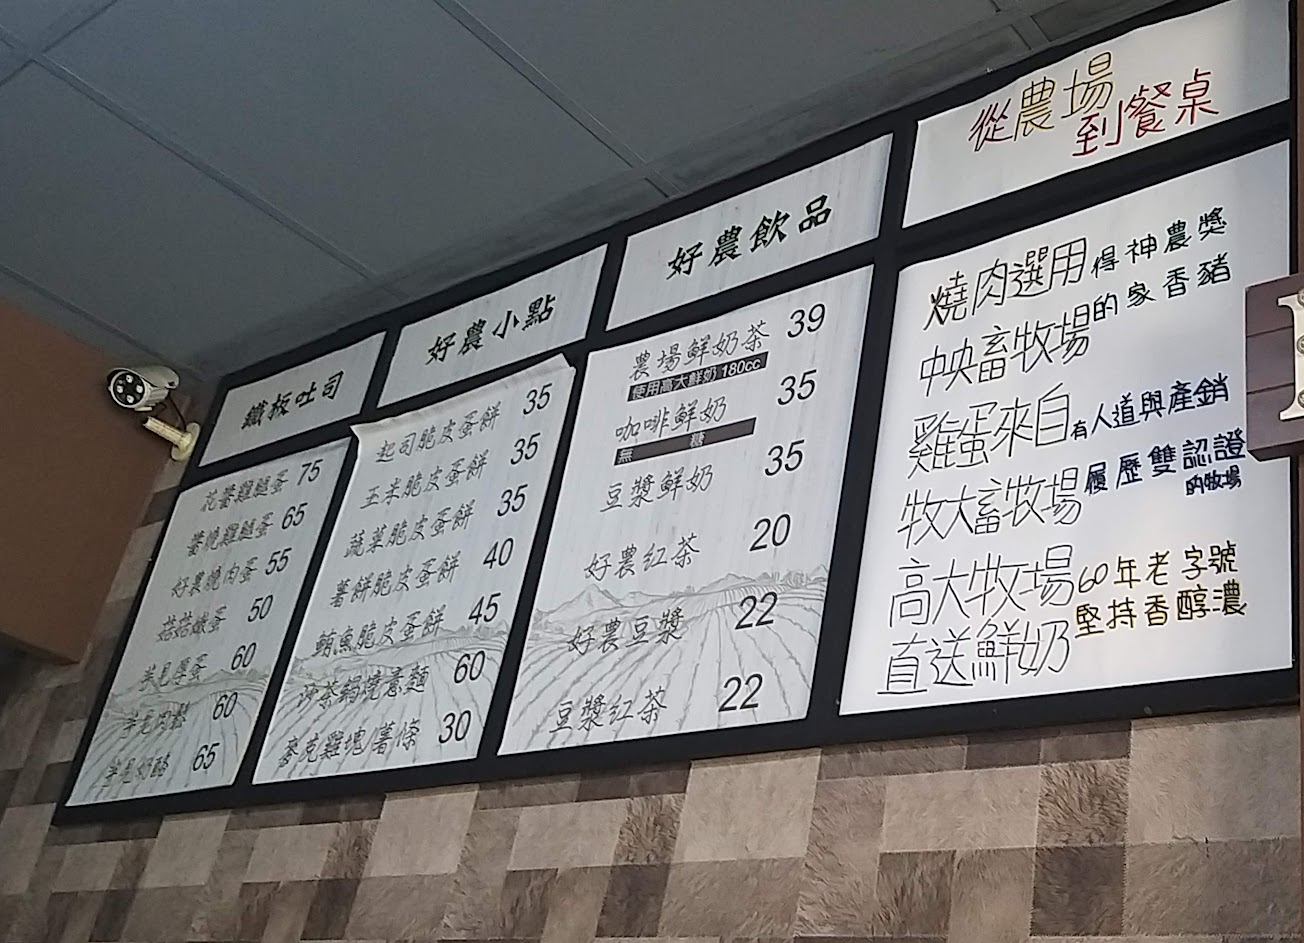 鐵板吐司
花醬雞腿蛋 75
醬燒雞腿蛋 65
好農燒肉蛋 55
菇菇嫩蛋 50
半見厚蛋 60
半見肉鬆 60
半見奶酪 65
好農小點
起司脆皮蛋餅 35
玉米脆皮蛋餅 35
蔬菜脆皮蛋餅 35
薯餅脆皮蛋餅 40
鮪魚脆皮蛋餅 45
沙茶鍋燒意麵 60
麥克雞塊/薯條 30
好農飲品
農場鮮奶茶 39
使用高大鮮奶 180cc
咖啡鮮奶 35
無 糖
豆漿鮮奶 35
好農紅茶 20
好農豆漿 22
豆漿紅茶 22
從農場
到餐桌
燒肉選用得神農獎
中央畜牧場的家香豬
雞蛋來自有人道與產銷
牧大畜牧場履歷雙認證
的牧場
高大牧場60年老字號
直送鮮奶堅持香醇濃